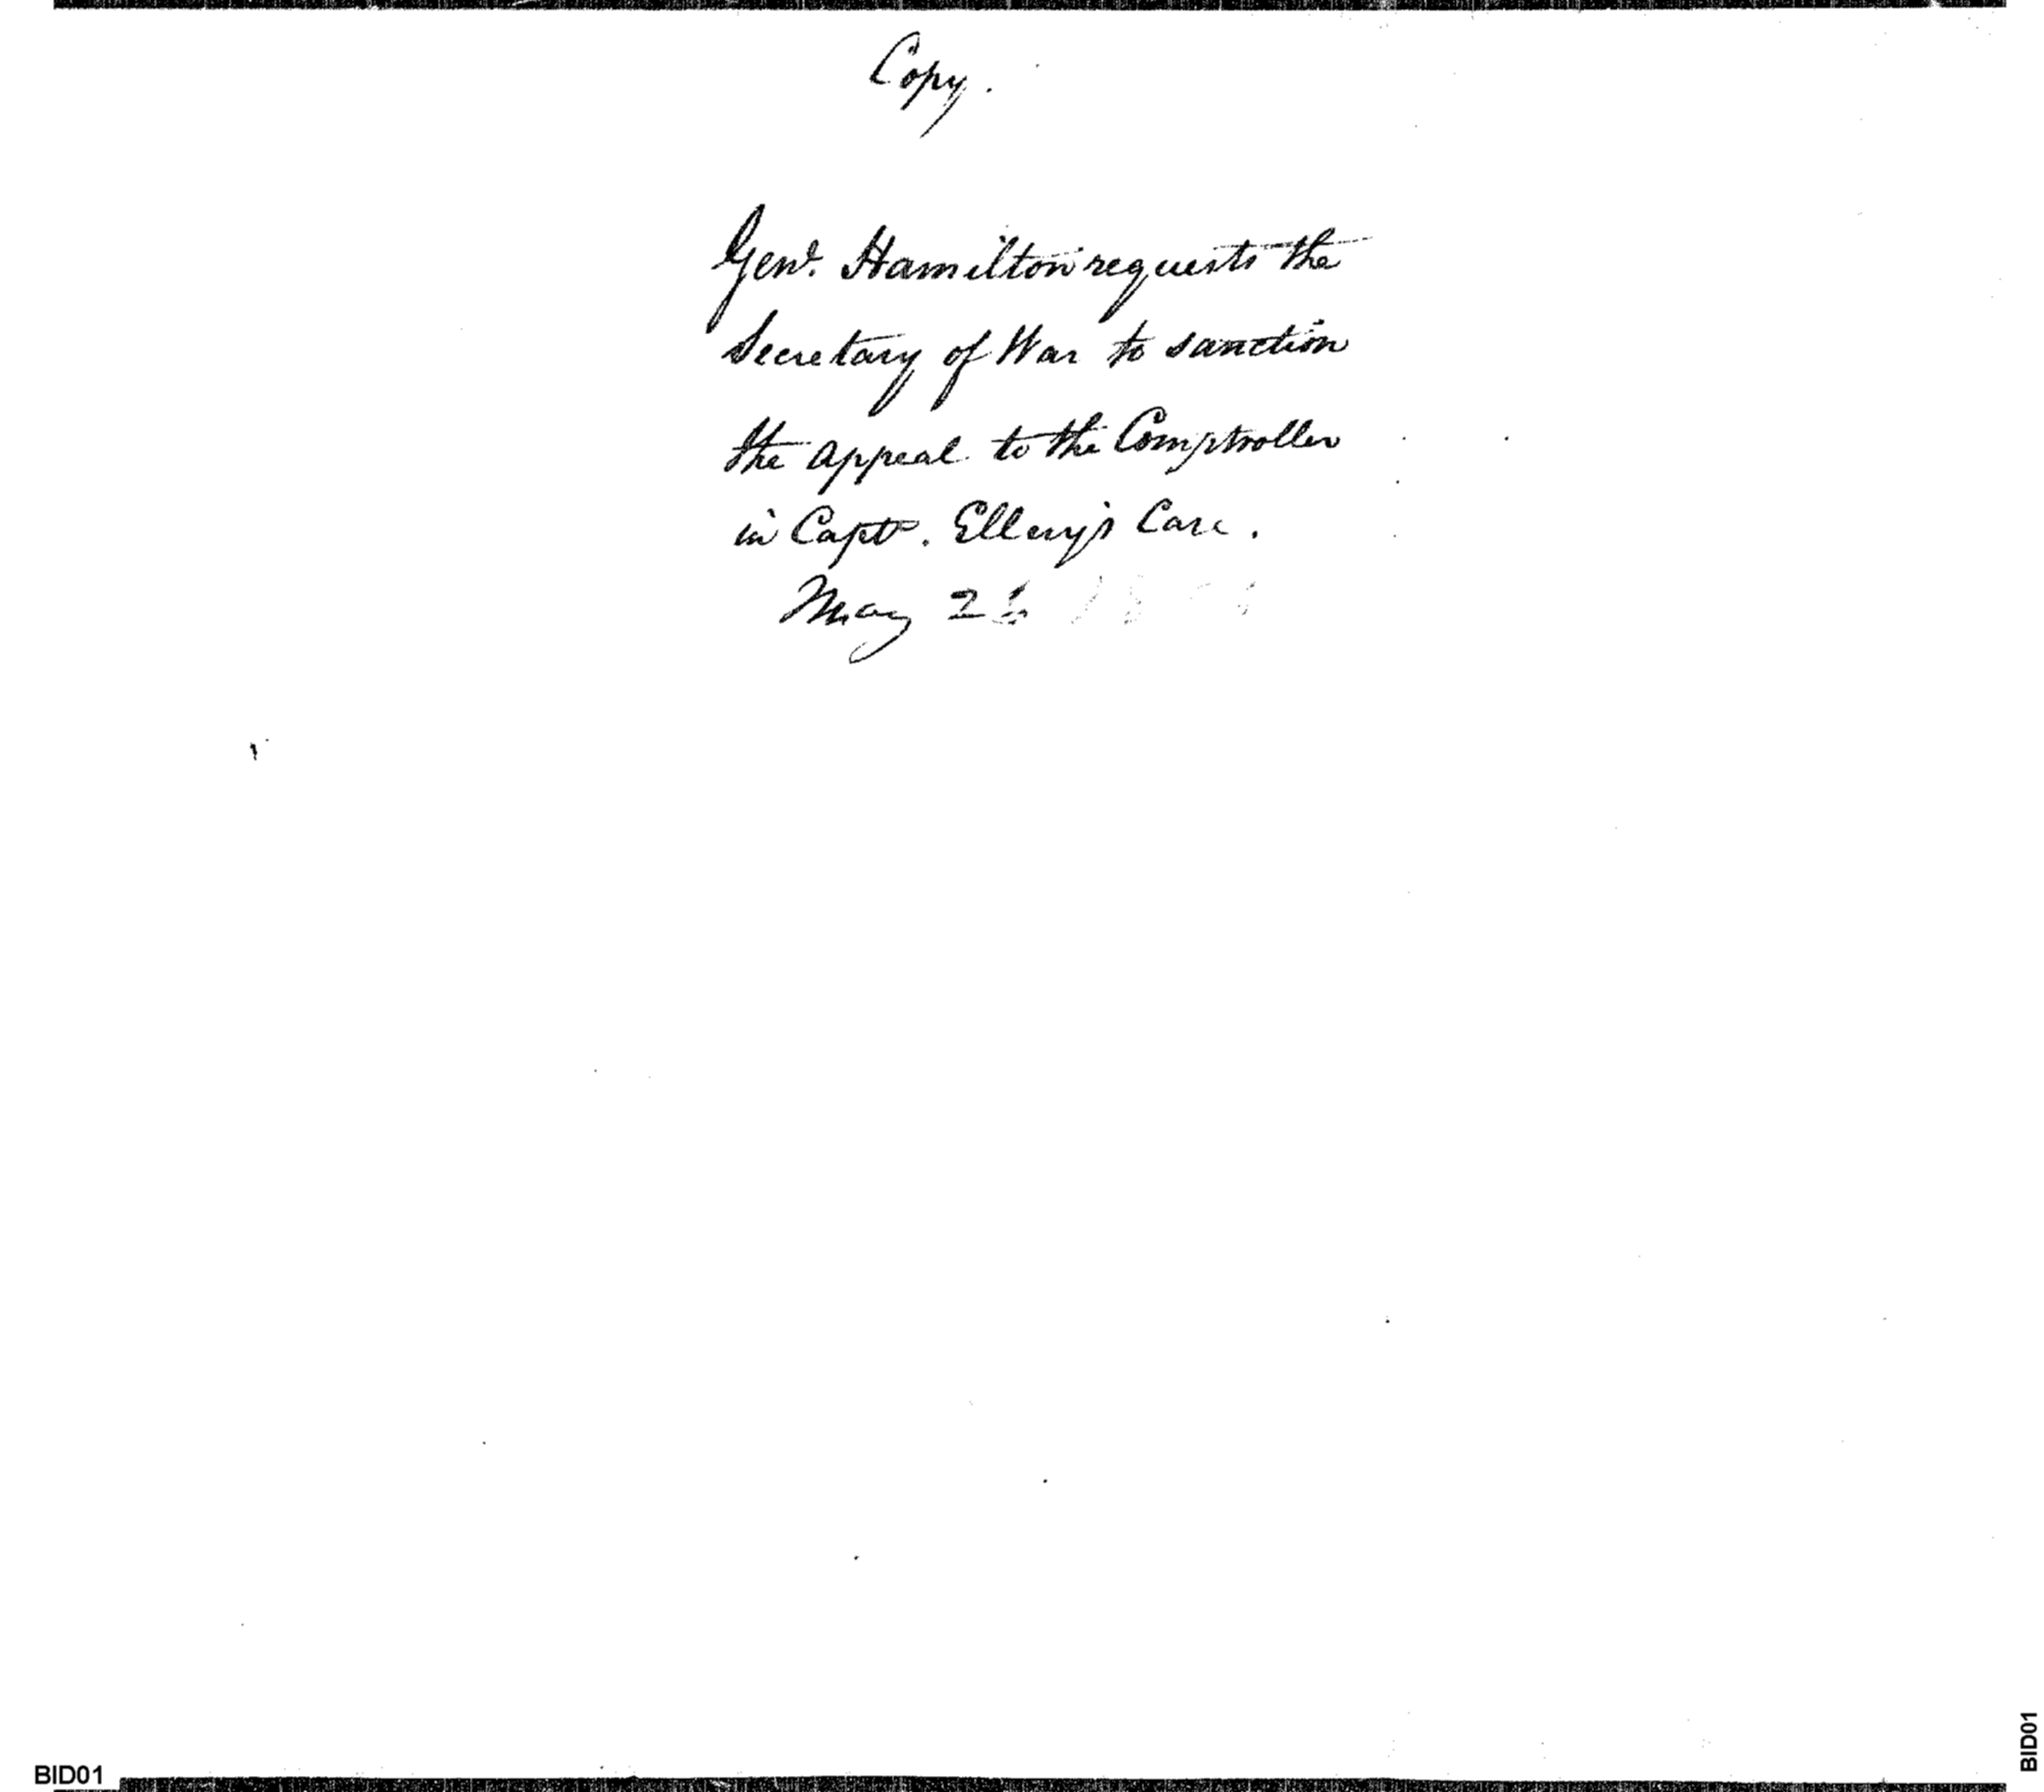 Copy.
Genl. Hamilton requests the
Secretary of War to sanction
the appeal to the Comptroller
in Capt. Ellery's Case.
May 26
BID01
BID01